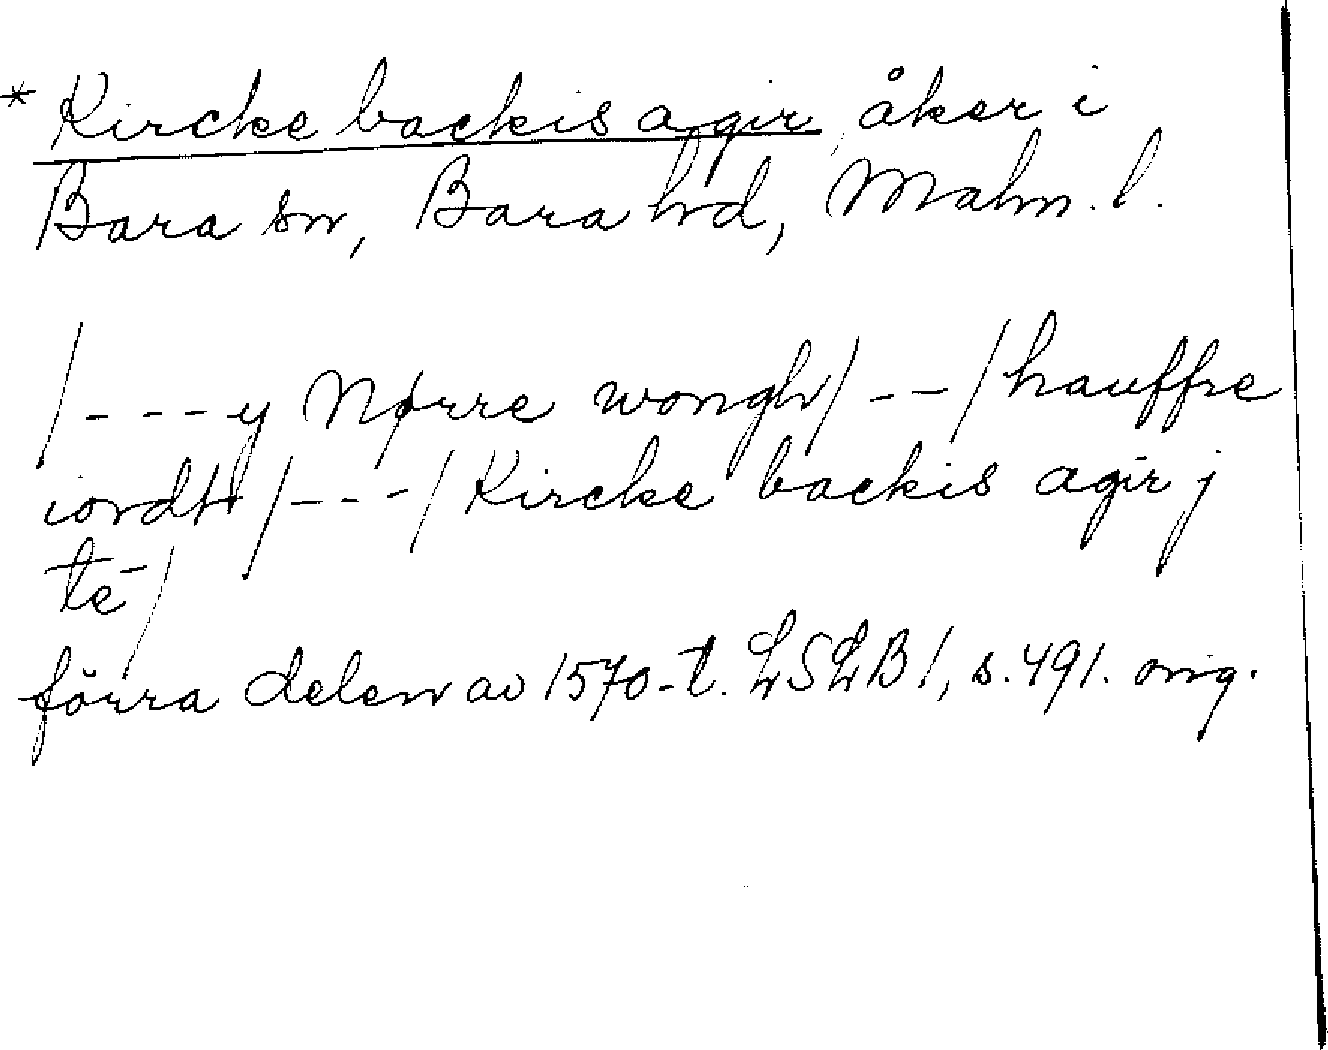 * Kircke backis agir, åker i
Bara sn, Bara hd, Malm. l.
/---y Nørre wongh/--/hauffre
iordtt/---/Kircke backis agir j
té/
förra delen av 1570-t. LSLB 1, s.491. orig.